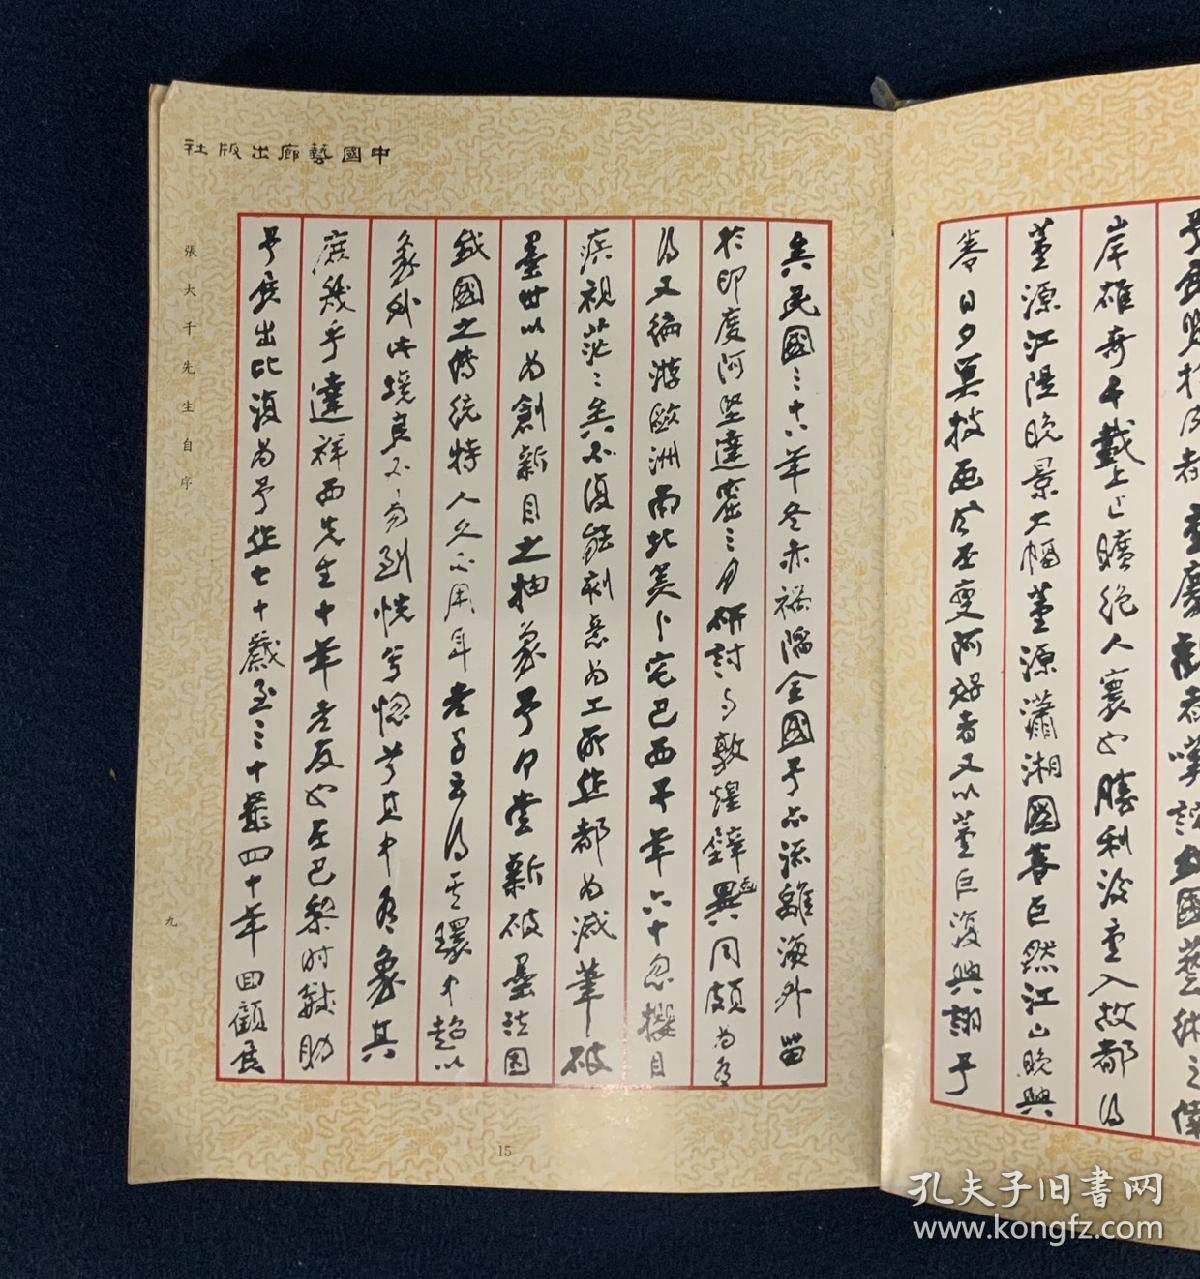 岸雄奇千載上正曠絕人寰也勝利後重入故都得
董源江隄晚景大幅董源瀟湘圖巨然江山晚興
日夕冥搜画風丕變阿好者又以董巨復興詡予
矣民國三十八年冬赤禍陷全國予亦流離海外留
於印度阿堅達窟三月研討與敦煌壁畫異同頗為有
得又徧游歐洲南北美卜宅巴西不年六十忽攖目
疾視茫茫矣不復能刻意為工所作都為減筆破
墨世以為創新目之抽象予何嘗新破墨法固
我國之傳統特人久不用耳老子云得其環中超以
象外此境良不易到恍兮惚兮其中有象其
庶幾乎達祥西先生十年老友也在巴黎時輒助
予展出比復為予作七十歲至三十歲四十年回顧展
中國藝廊出版社
張大千先生自序
九
15
孔夫子旧書网
www.kongfz.com